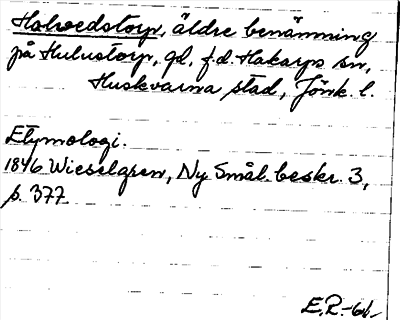 Holvedstorp, äldre benämning
på Hulustorp, gd, f.d. Hakarps sn,
Huskvarna stad, Jönk. l.
Etymologi.
1846 Wieselgren, Ny Smål. beskr. 3,
s. 377
E.R.-61.